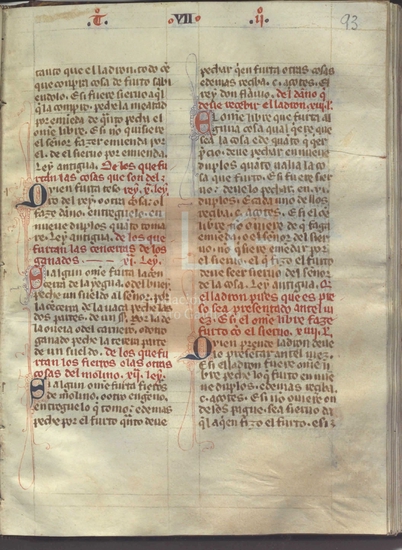 T VII II 93
tanto que el ladron. todo ce
que compra cosa de furto sabi
endolo. E si fuere sieruo aql
qui la compro. peche la meatad
por emieda de qnto pechu el
ome libre. E si no quisiere
el señor fazer emienda por
el. de el sieruo por emienda.
Ley antigua. De los que fu
rtan las cosas que son del
rey. x. ley.
Quien furta teso
ro del rey o otra cosa. o l
faze daño. entreguelo. en
nueue duplos quato toma
re. Ley antigua. de los que
furtan las cencerras de los
ganados. xi. Ley.
Si algun ome furta la cen
cerra de la yegua. o del buey
peche un sueldo al señor. por
la cencerra de la uaca peche las
dos partes. de un s. Por la de
la oueia o del carnero. o dotro
ganado peche la tercera parte
de un sueldo. de los que fu
rtan los fierros o las otras
cosas del molino. xij. ley.
Si algun ome furta fierros
de molino. o otro engenno.
entreguelo q tomo. e demas
peche por el furto qnto deue
pechar qen furta otras cosas
e demas reciba. c. açotes. El
rey don flauio. del daño q
deue recebir el ladron. xiij. l.
El ome libre que furta al
guna cosa qual qere que
sea la cosa e de quato qer p
cio. deue pechar en nueue
duplos quato ualia la co
sa que furto. E si fuere sier
uo deuelo pechar. en. vj.
duplos. E cada uno dellos
reciba. c. açotes. E si el ome
libre no ouiere de que faga
emienda. o el señor del sier
uo. no quisiere emedar por
el. el sieruo qe fizo el furto
deue seer sieruo del señor
de la cosa. Ley antigua. Q
el ladron pues que es pre
so sea presentado antel iu
ez. E si el ome libre faze
furto co el sieruo. xiiij. l.
Quien prende ladron deue
lo presentar antel iuez.
E si el ladron fuere ome li
bre peche lo que furto en nue
ue duplos. e demas reciba.
c. açotes. E si no ouiere on
de los pague. sea sieruo da
ql a qen fizo el furto. e si